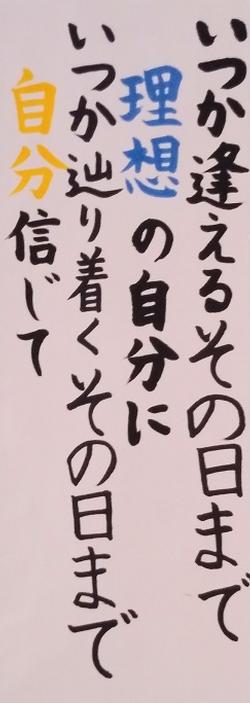 いつか逢えるその日まで
理想の自分に
いつか辿り着くその日まで
自分信じて